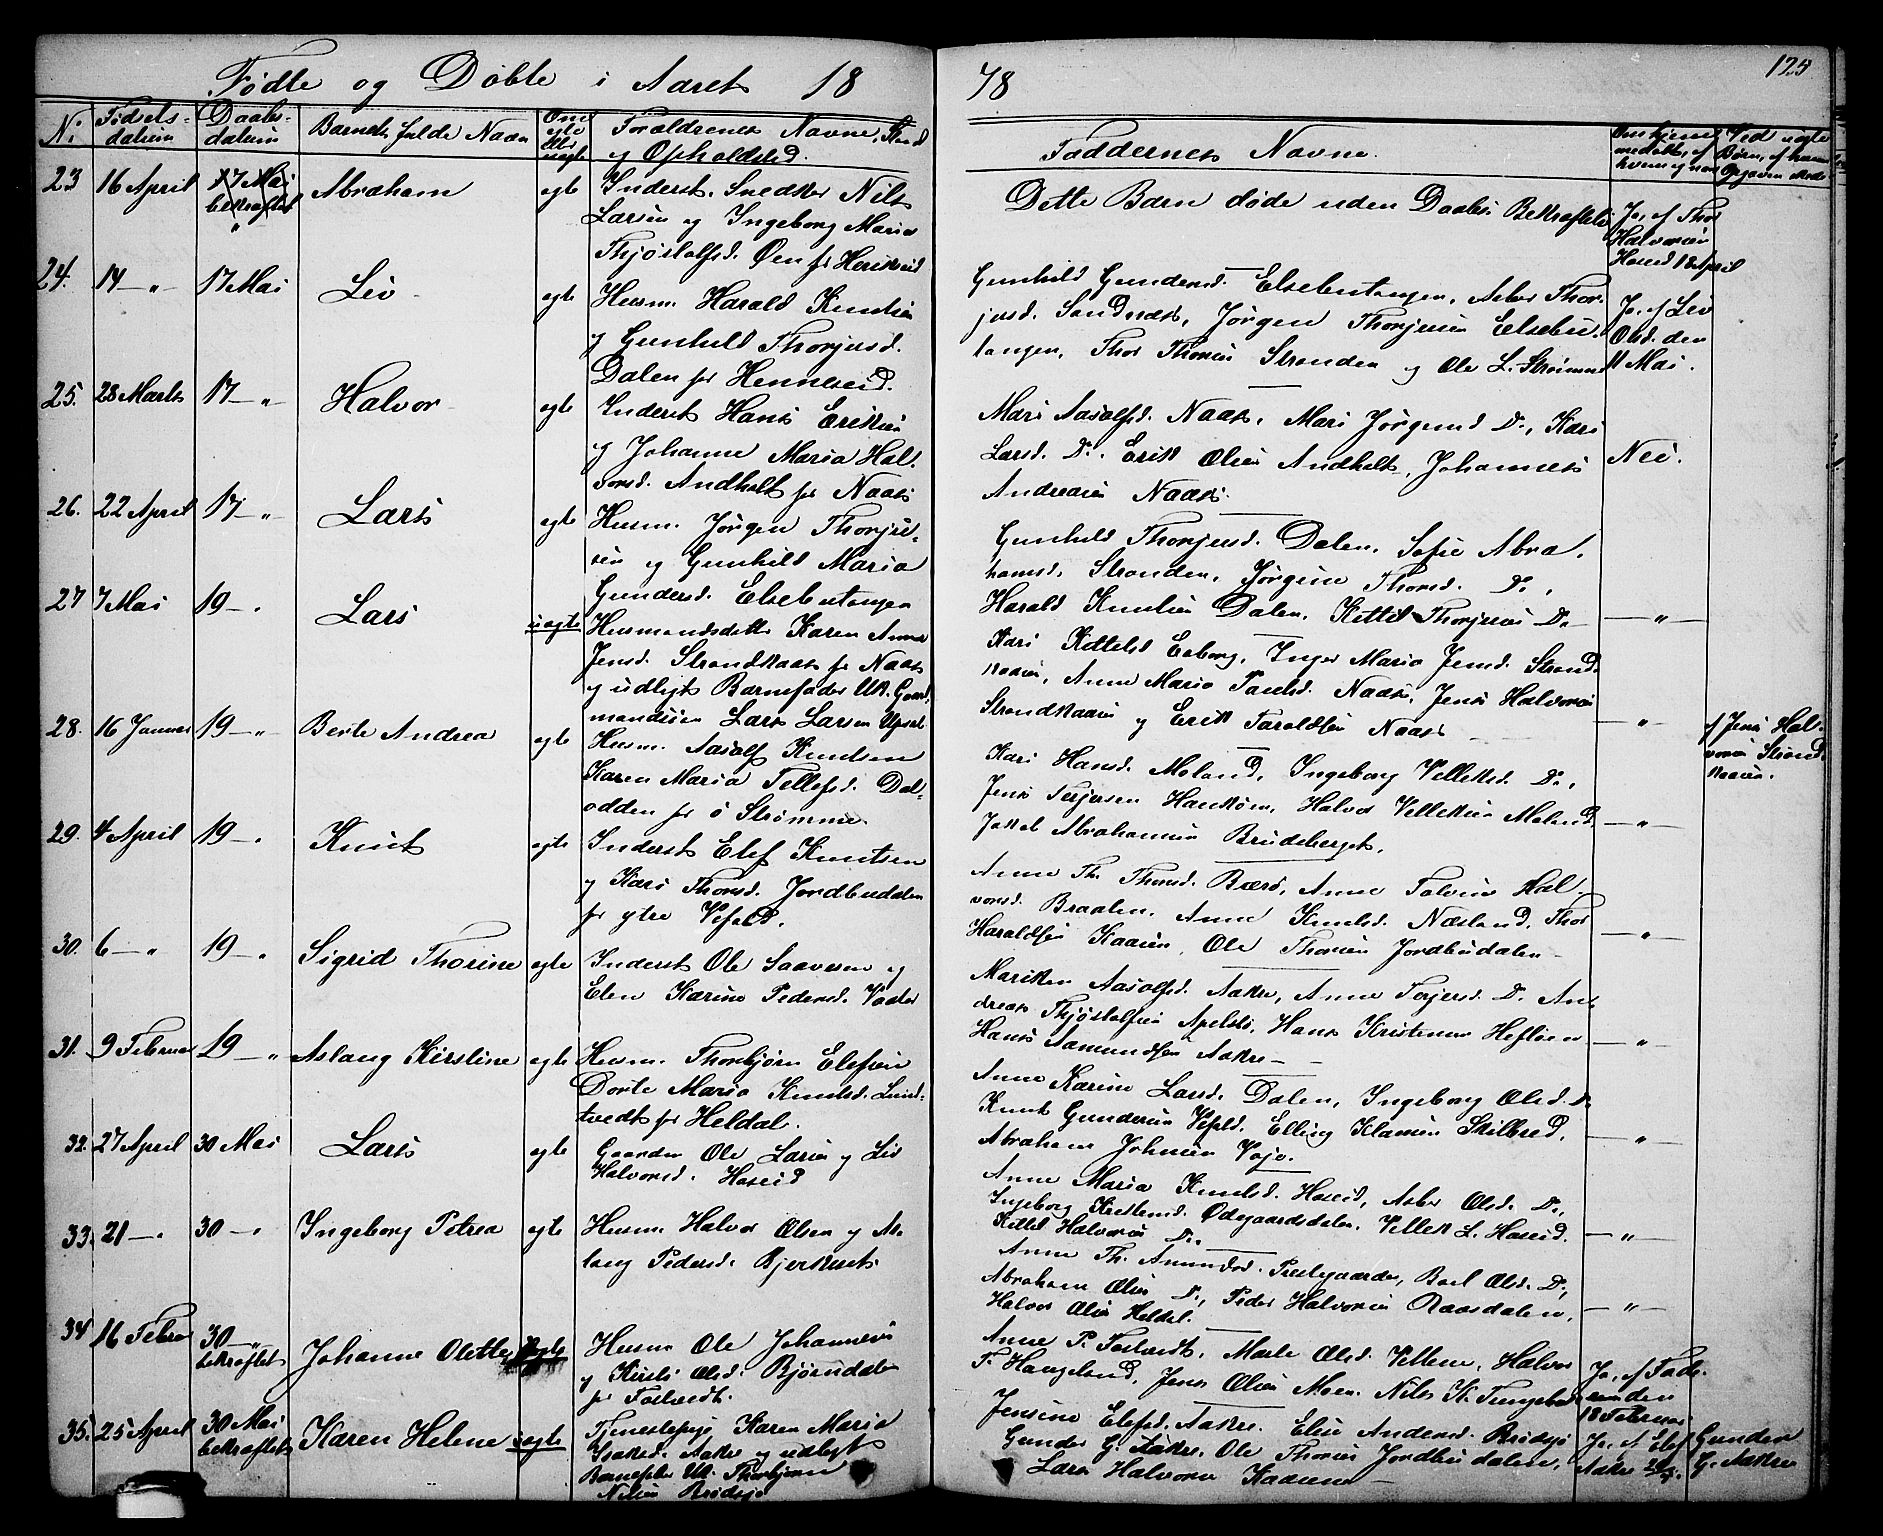 125
Fødte og Døbte i Aaret 18
78
No
Fødsels-
datum
Daabs-
datum
Barnets fulde Navn
Om
egte
eller
uegte
Forældrenes Navne, Stand
og Opholdsted.
Faddernes Navne.
23 16 April 17 Mai bekræftet Abraham egte
Inderst. Snedker Nils
Larsen og Ingeborg Maria
Thjøstolfsd. Øen fr Heriseid
Dette Barn døde uden Daabs Bekræftelse
Ja, af Thor
Halvorsen
Haseid 18 April
24. 14 — " 17 Mai Liv egte
Husm. Harald Knutsen
og Gunhild Thorjusd.
Dalen fr Henneseid.
Gunhild Gundersd. Elsebutangen, Asber Thor-
jusd. Sandnæs, Jørgen Thorjusen Elsebu-
tangen, Thor Thorsen Stranden og Ole L. Strømme
Ja, af Liv
Olsd. den
11 Mai.
25. 28 Marts 17 — " Halvor egte
Inderst Hans Eriksen
og Johanne Maria Hal-
vorsd. Andholt fr Naas
Mari Aasolfsd. Naas, Mari Jørgensd Do, Kari
Larsd. Do. Erik Olsen Andholt, Johannes
Andreasen Naas.
Nei.
26. 22 April 17 — " Lars egte
Husm. Jørgen Thorju-
sen og Gunhild Maria
Gundersd. Elsebutangen
Gunhild Thorjusd. Dalen, Sofie Abra-
hamsd. Stranden, Jørgine Thorsd. Do,
Harald Knutsen Dalen, Kittil Thorjusen Do
— " —
27 7 Mai 19 — " Lars uegte
Husmandsdatter Karen Anne
Jensd. Strandkaas fr Naas
og udlagt Barnefader Uk. Gaard-
mandssøn Lars Larsen
Kari Kittelsd Eeborg, Inger Maria Jensd. Strand-
kaasen, Anne Maria Paulsd. Naas, Jens Halvorsen
Strandkaasen og Erik Taraldsen Naas
— " —
af Jens Hal-
vorsen Strand-
kaasen.
28. 16 Januar 19 — " Berte Andrea egte
Husm. Aasolf Knutsen
Karen Maria Tellefsd. Dal-
odden fr ö Strømme
Kari Hansd. Moland, Ingeborg Velleksd. Do,
Jens Terjesen Hankaasen, Halvor Velleksen Moland,
Jakob Abrahamsen Brudeberget.
— " —
29. 4 April 19 — " Knut egte
Inderst Elef Knutsen
og Kari Thorsd. Jordbudalen
fr ytre Vefald.
Anne Th. Thorsd. Bærø, Anne Tolvine Hal-
vorsd. Braaten, Anne Knutsd. Næsland, Thor
Haraldsen Kaasen, Ole Thorsen Jordbudalen
— " —
30. 6 — " 19 — " Sigrid Thorine egte
Inderst Ole Saavesen og
Elen Karine Pedersd. Vaaler
Mariken Aasolfsd. Aakre, Anne Terjersd. Do. An-
dreas Thjøstolfsen Apelstø, Hans Kristensen Hefteen
Hans Aamundsen Aakre
— " —
31. 9 Februar 19 — " Aslaug Kirstine egte
Husm. Thorbjørn Elefsen
Dorte Maria Knutsd. Lund-
tvedt fr Heldal.
Anne Karine Larsd. Dalen, Ingeborg Olsd. Do
Knut Gundersen Vefald, Elling Klausen Skilbred,
Abraham Johnsen Vaje.
— " —
32. 27 April 30 Mai Lars egte
Gaardm Ole Larsen og Liv
Halvorsd. Haseid
Anne Maria Knutsd. Haseid, Asber Olsd. Do,
Ingeborg Kristensd. Ødegaardsdalen, Vellek L. Haseid.
Kittil Halvorsen Do.
— " —
33. 21 — " 30 — " Ingeborg Petrea egte
Husm Halvor Olsen og As-
laug Pedersd. Bjerkeset
Anne Th. Amundsd. Prestegaarden, Boel Olsd. Do,
Abraham Olsen Do, Peder Halvorsen Raasdalen,
Halvor Olsen Heldal.
— " —
34 16 Februar 30 — " bekræftet Johanne Olette egte
Husm Ole Johannesen
og Kirsti Olsd. Bjørndalen
fr Fostvedt.
Anne P. Fostvedt, Marte Olsd. Vellene, Halvor
T. Haugeland, Jens Olsen Moen. Nils K.
Ja, af Fade-
ren den
18 Februar
35. 25 April 30 Mai bekræftet Karen Helene uegte
Tjenestepige Karen Maria
Isaksd. Aakre og udlagt
Barnefader Uk. Thorbjørn
Nilsen Brødsjø
Jensine Elefsd. Aakre. Elise Andersd. Brødsjø
Gunder G. Aakre, Ole Thorsen Jordbudalen,
Lars Halvorsen Kaasene
Ja, af Elef
Aakre
Gunder
G. Aakre